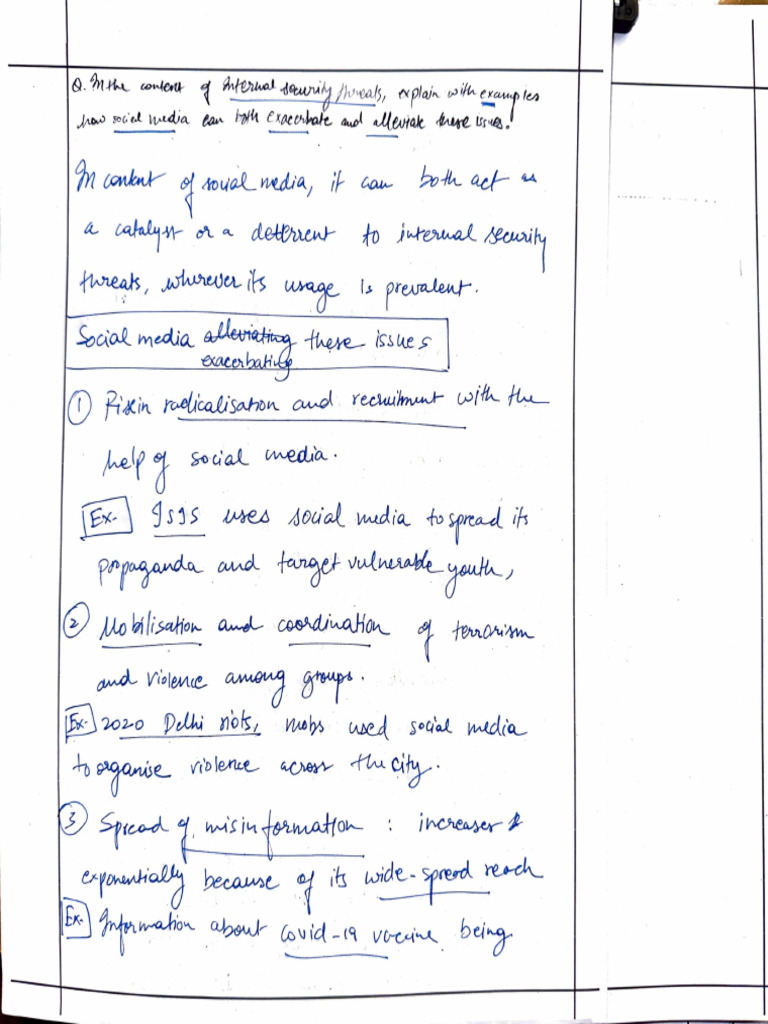 Q. In the content of internal security threats, explain with examples
how social media can both exacerbate and alleviate these issues.
In content of social media, it can both act as
a catalyst or a deterrent to internal security
threats, wherever its usage is prevalent.
Social media alleviating these issues
exacerbating
① Rise in radicalisation and recruitment with the
help of social media.
Ex- ISIS uses social media to spread its
propaganda and target vulnerable youth,
② Mobilisation and coordination of terrorism
and violence among groups.
Ex- 2020 Delhi riots, mobs used social media
to organise violence across the city.
③ Spread of misinformation : increases
exponentially because of its wide-spread reach
Ex- Information about covid-19 vaccine being